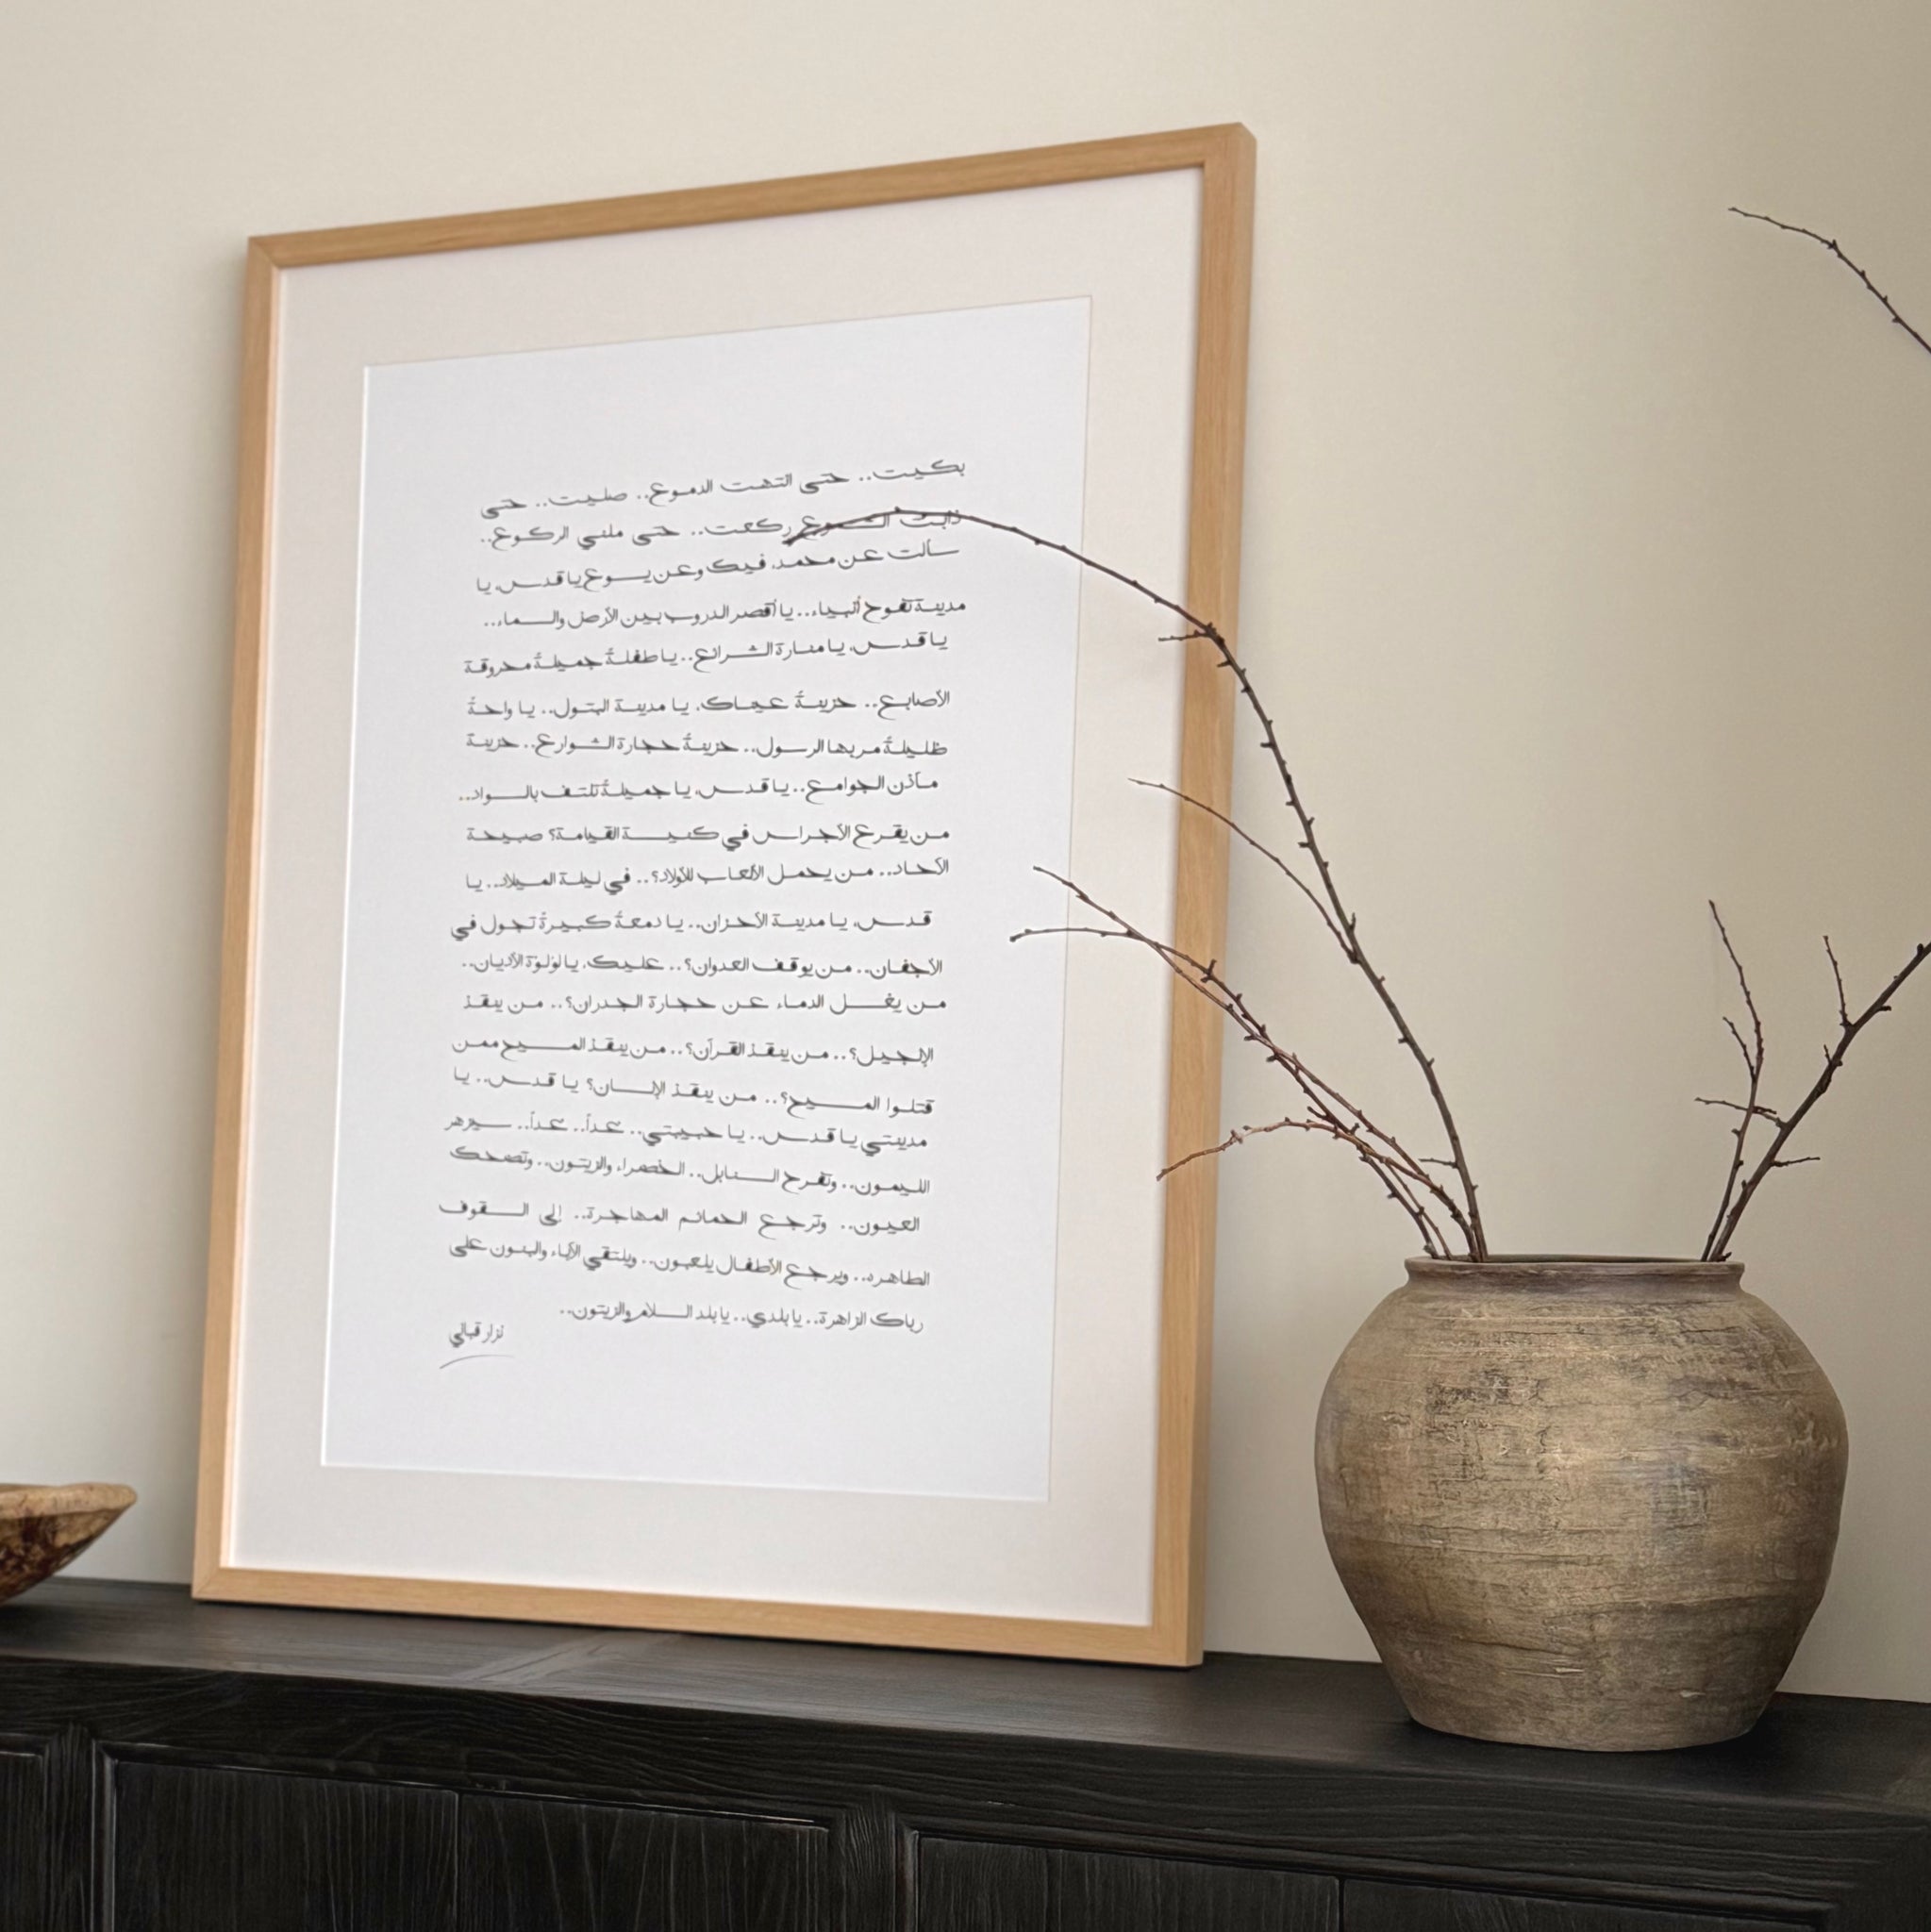 بكيت.. حتى انتهت الدموع.. صليت.. حتى
ذابت الشموع ركعت.. حتى ملني الركوع..
سألت عن محمد، فيك وعن يسوع يا قدس، يا
مدينة تفوح أنبياء.. يا أقصر الدروب بين الأرض والسماء..
يا قدس، يا منارة الشرائع.. يا طفلةً جميلةً محروقة
الأصابع.. حزينةٌ عيناك، يا مدينة البتول.. يا واحةً
ظليلةً مر بها الرسول.. حزينةٌ حجارة الشوارع.. حزينةٌ
مآذن الجوامع.. يا قدس، يا جميلةً تلتف بالسواد..
من يقرع الأجراس في كنيسة القيامة؟ صبيحة
الآحاد.. من يحمل الألعاب للأولاد؟.. في ليلة الميلاد.. يا
قدس، يا مدينة الأحزان.. يا دمعةً كبيرةً تجول في
الأجفان.. من يوقف العدوان؟.. عليك، يا لؤلؤة الأديان..
من يغسل الدماء عن حجارة الجدران؟.. من ينقذ
الإنجيل؟.. من ينقذ القرآن؟.. من ينقذ المسيح ممن
قتلوا المسيح؟.. من ينقذ الإنسان؟ يا قدس.. يا
مدينتي يا قدس.. يا حبيبتي.. غداً.. غداً.. سيزهر
الليمون.. وتفرح السنابل.. الخضراء والزيتون.. وتضحك
العيون.. وترجع الحمائم المهاجرة.. إلى السقوف
الطاهره.. ويرجع الأطفال يلعبون.. ويلتقي الآباء والبنون على
رباك الزاهرة.. يا بلدي.. يا بلد السلام والزيتون..
نزار قباني